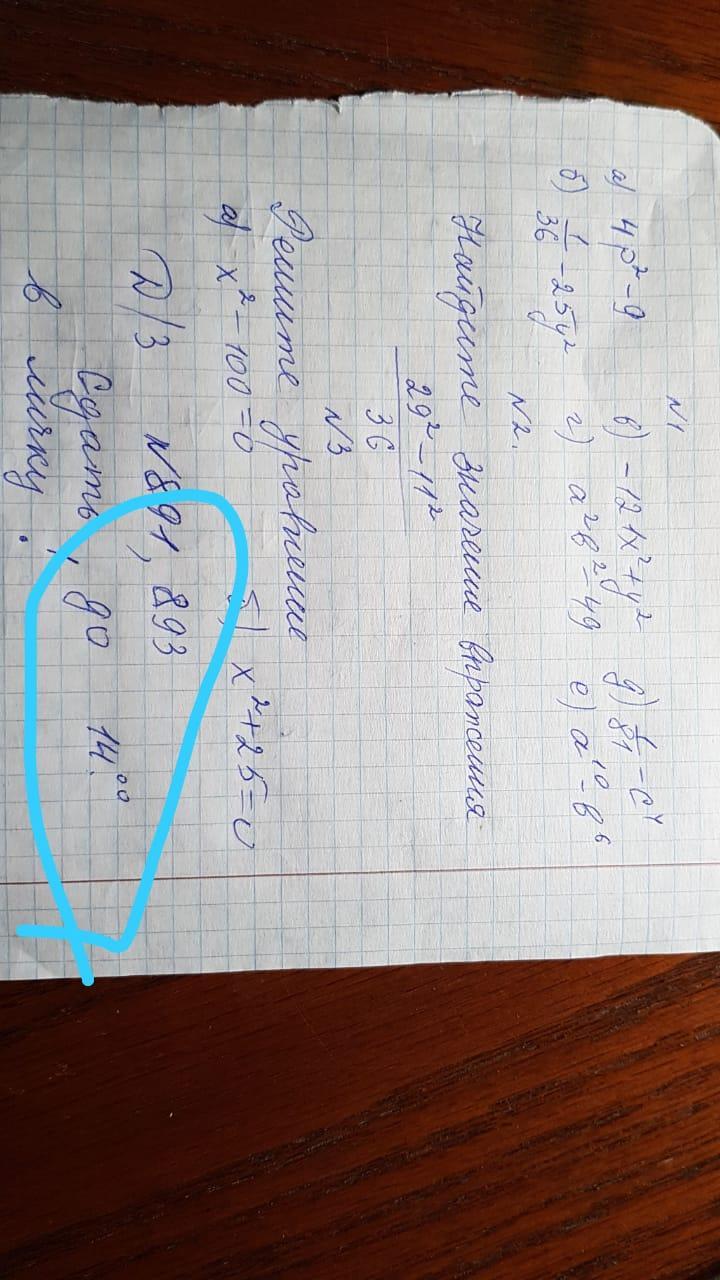 N1
а) 4p² - 9 в) -121x² + y² д) 1/81 - c⁴
б) 1/36 - 25y² г) a²b² - 49 е) a¹⁰ - b⁶
N2.
Найдите значение выражения
29² - 11²
36
N3
Решите уравнение
а) x² - 100 = 0 б) x² + 25 = 0
Д/З N891, 893
Сдать до 14.⁰⁰
в личку.